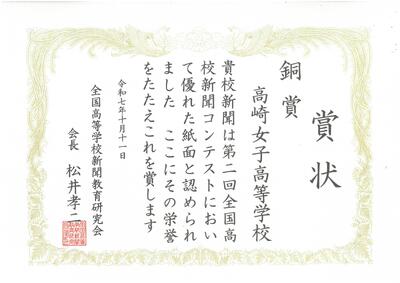 賞状
銅賞
高崎女子高等学校
貴校新聞は第二回全国高
校新聞コンテストにおい
て優れた紙面と認められ
ました ここにその栄誉
をたたえこれを賞します
令和七年十月十一日
全国高等学校新聞教育研究会
会長 松井孝二